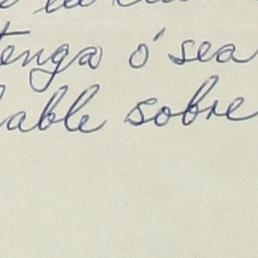 tenga ó sea
hable sobre